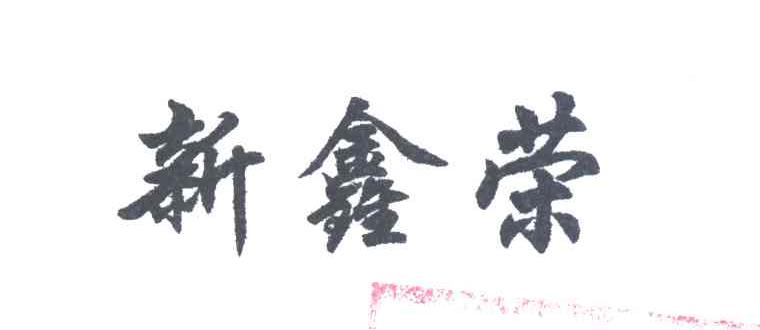 新鑫荣